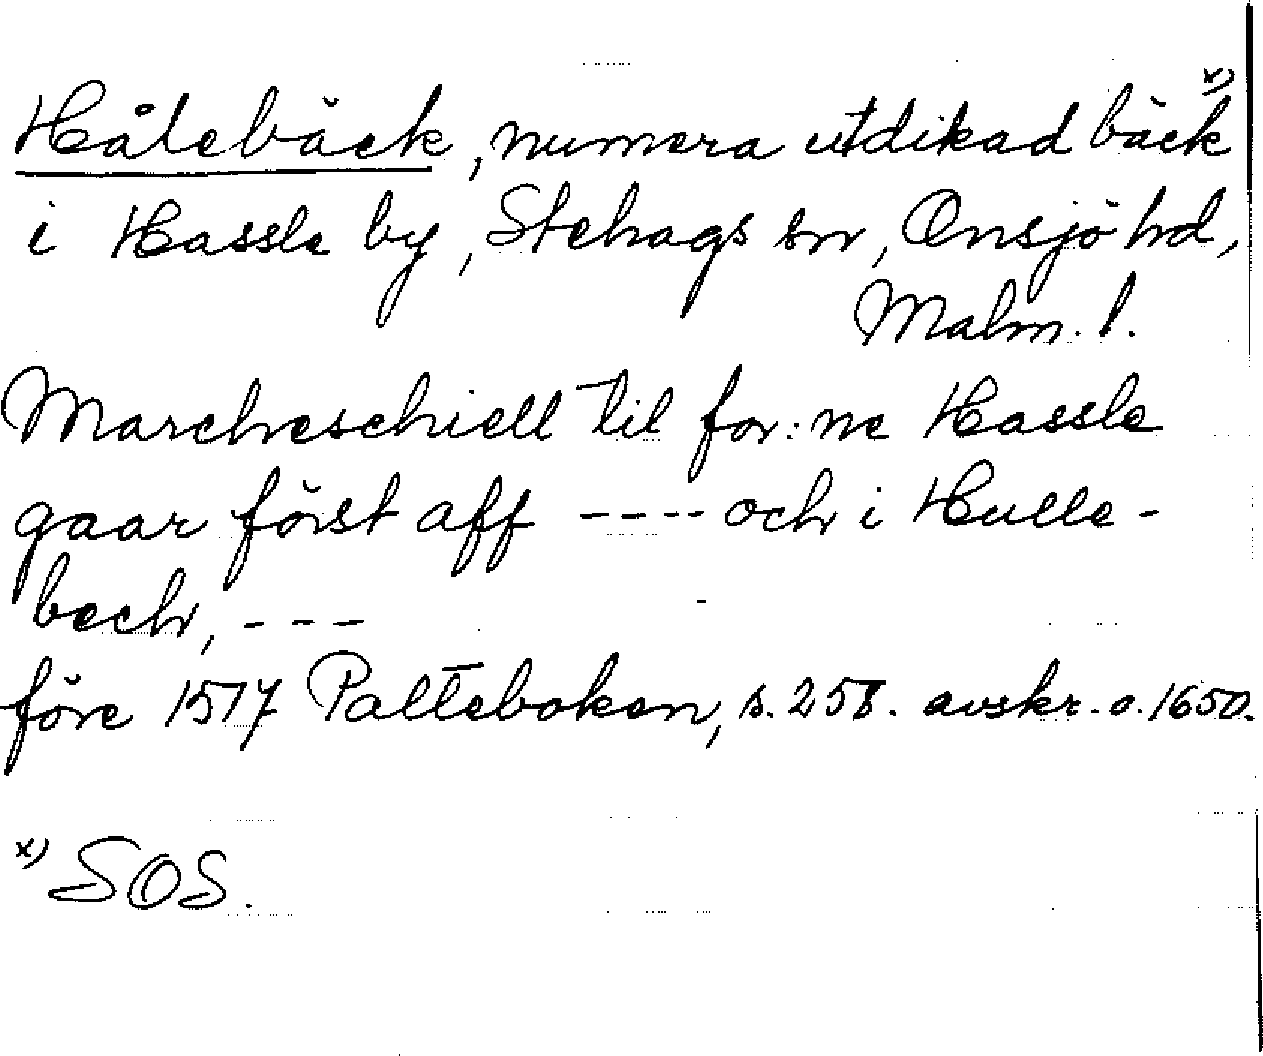 Hålebäck, numera utdikad bäck x)
i Hassle by, Stehags sn, Onsjö hd,
Malm. l.
Marcheschiell til for:ne Hassle
gaar först aff ---- och i Hulle-
bech, ---
före 1517 Palteboken, s. 258. avskr. o. 1650.
x) SOS.